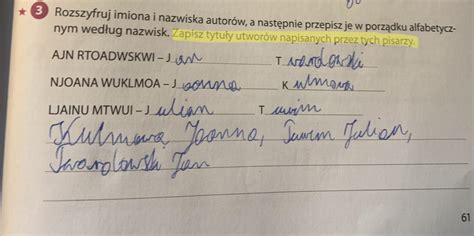 ★ 3 Rozszyfruj imiona i nazwiska autorów, a następnie przepisz je w porządku alfabetycz-
nym według nazwisk. Zapisz tytuły utworów napisanych przez tych pisarzy.
AJN RTOADWSKWI – J an T wardowski
NJOANA WUKLMOA – J oanna K ulmowa
LJAINU MTWUI – J ulian T uwim
Kulmowa Joanna, Tuwim Julian,
Twardowski Jan
61